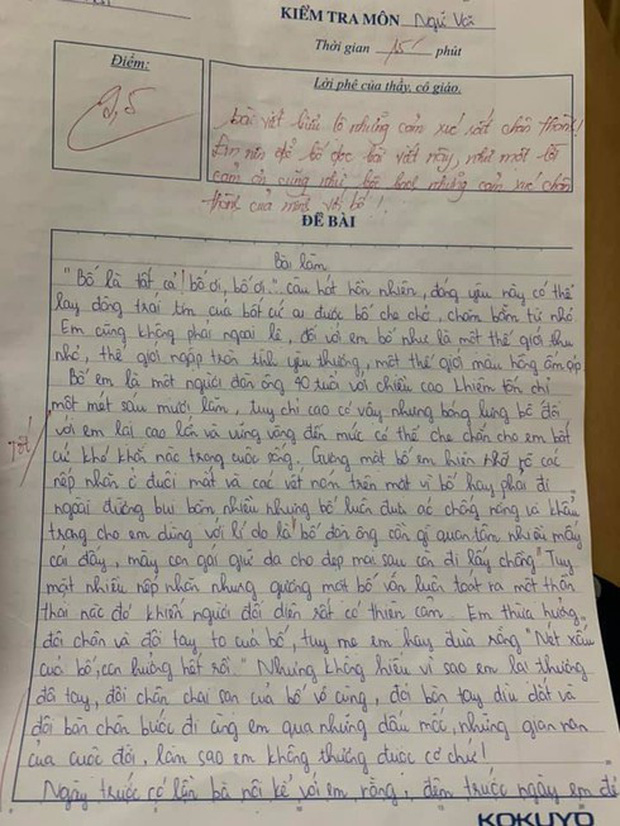 KIỂM TRA MÔN Ngữ Văn
Thời gian 15' phút
Điểm:
9,5
Lời phê của thầy, cô giáo.
Bài viết biểu lộ những cảm xúc rất chân thành!
Em nên để bố đọc bài viết này, như một lời
cảm ơn cũng như những cảm xúc chân
thành của mình với bố!
ĐỀ BÀI
Bài làm
"Bố là tất cả! bố ơi, bố ơi.." câu hát hồn nhiên, đáng yêu này có thể
lay động trái tim của bất cứ ai được bố che chở, chăm bẵm từ nhỏ
Em cũng không phải ngoại lệ, đối với em bố như là một thế giới thu
nhỏ, thế giới ngập tràn tình yêu thương, một thế giới màu hồng ấm áp.
Bố em là một người đàn ông 40 tuổi với chiều cao khiêm tốn chỉ
một mét sáu mươi lăm, tuy chỉ cao có vậy nhưng bóng lưng bố đối
với em lại cao lớn và vững vàng đến mức có thể che chắn cho em bất
tốt
cứ khó khăn nào trong cuộc sống. Gương mặt bố em hiện rõ các
nếp nhăn ở đuôi mắt và các vết nám trên mặt vì bố hay phải đi
ngoài đường bụi bặm nhiều nhưng bố luôn đưa áo chống nắng và khẩu
trang cho em dùng với lí do là "bố đàn ông cần gì quan tâm nhiều mấy
cái đấy, mày con gái giữ da cho đẹp mai sau còn đi lấy chồng" Tuy
mặt nhiều nếp nhăn nhưng gương mặt bố vẫn luôn toát ra một thần
thái nào đó khiến người đối diện rất có thiện cảm. Em thừa hưởng
đôi chân và đôi tay to của bố, tuy mẹ em hay đùa rằng "Nét xấu
của bố, con hưởng hết rồi." Nhưng không hiểu vì sao em lại thương
đôi tay, đôi chân chai sạn của bố vô cùng, đôi bàn tay dìu dắt và
đôi bàn chân bước đi cùng em qua những dấu mốc, những gian nan
của cuộc đời, làm sao em không thương được cơ chứ!
Ngày trước có lần bà nội kể với em rằng, đêm trước ngày em đi
KOKUYO